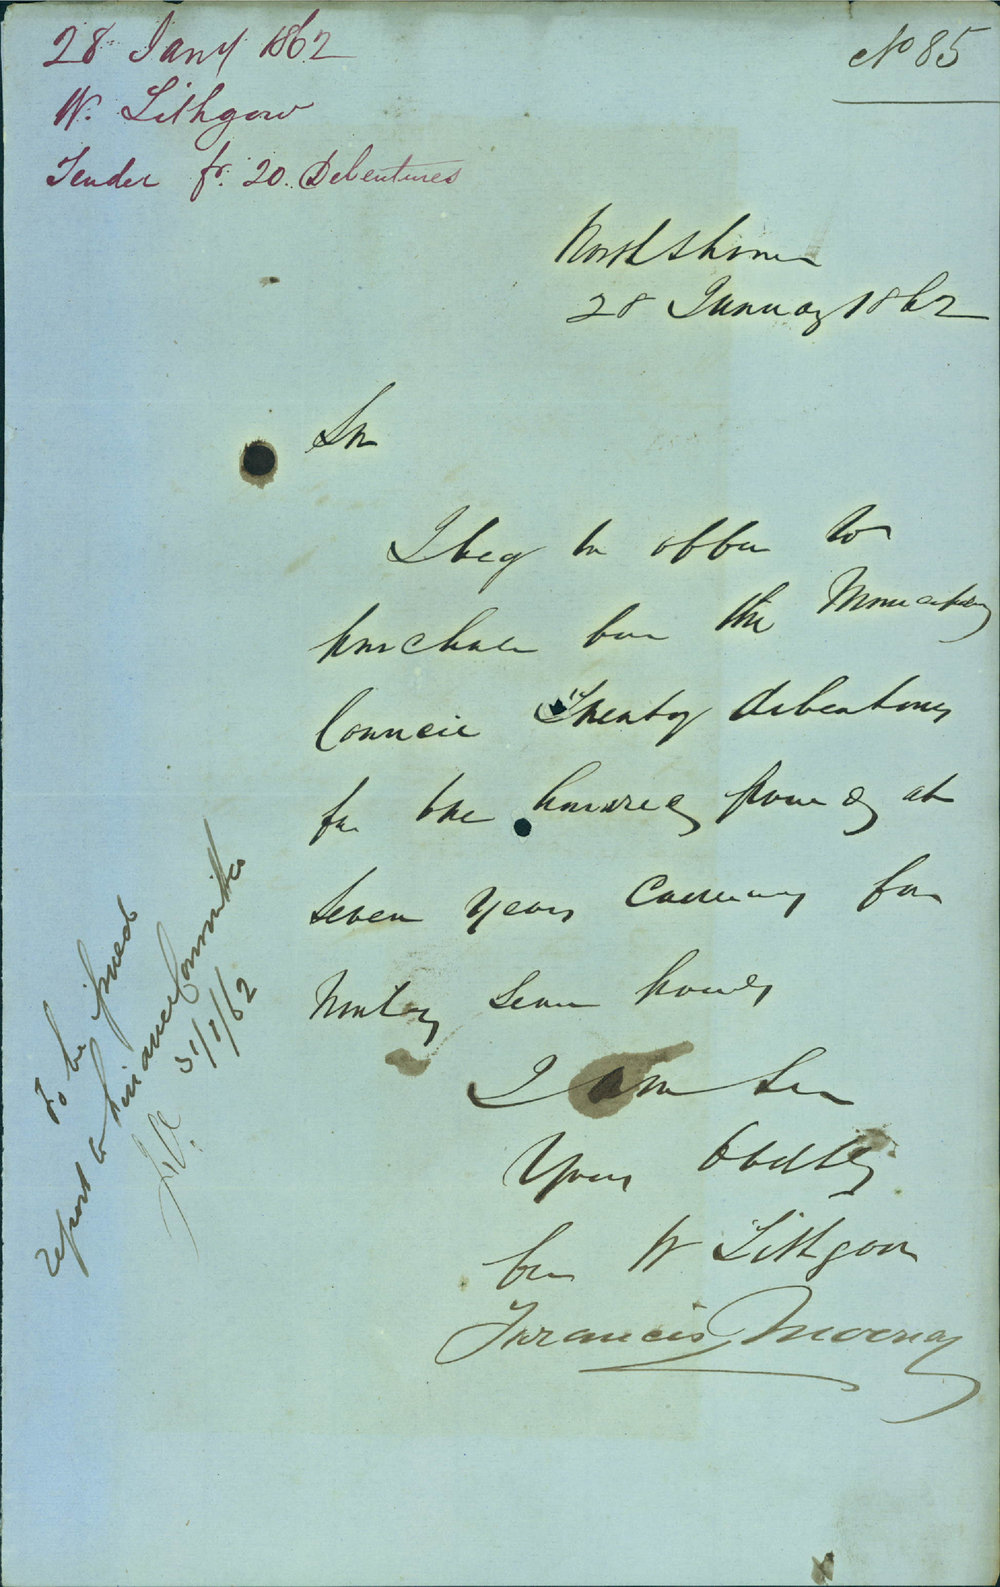 28 Jany 1862
W. Lithgow
Tender fr. 20 Debentures
No 85
North Shore
28 January 1862
Sir
I beg to offer to
purchase from the Municipal
Council Twenty debentures
for one hundred pounds at
seven years Currency for
Ninety seven pounds
I am Sir
Yours Obdtly
for W Lithgow
Francis Mooney
To be issued
report to Finance Committee
31/1/62